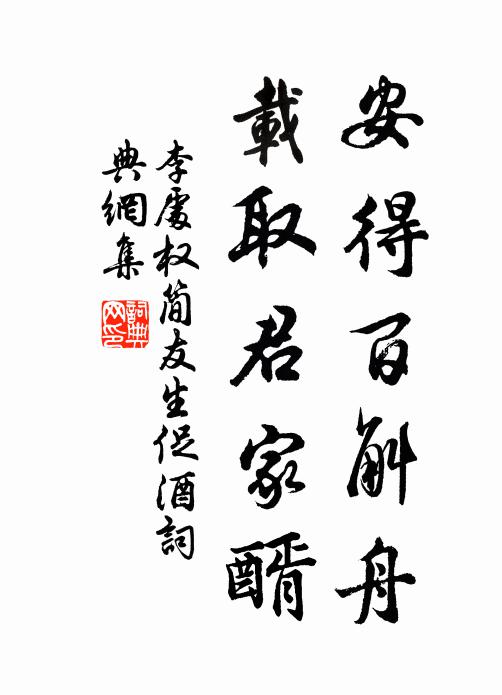 安得百斛舟
載取君家醑
李處权简友生促酒詞
典網集
詞典網印